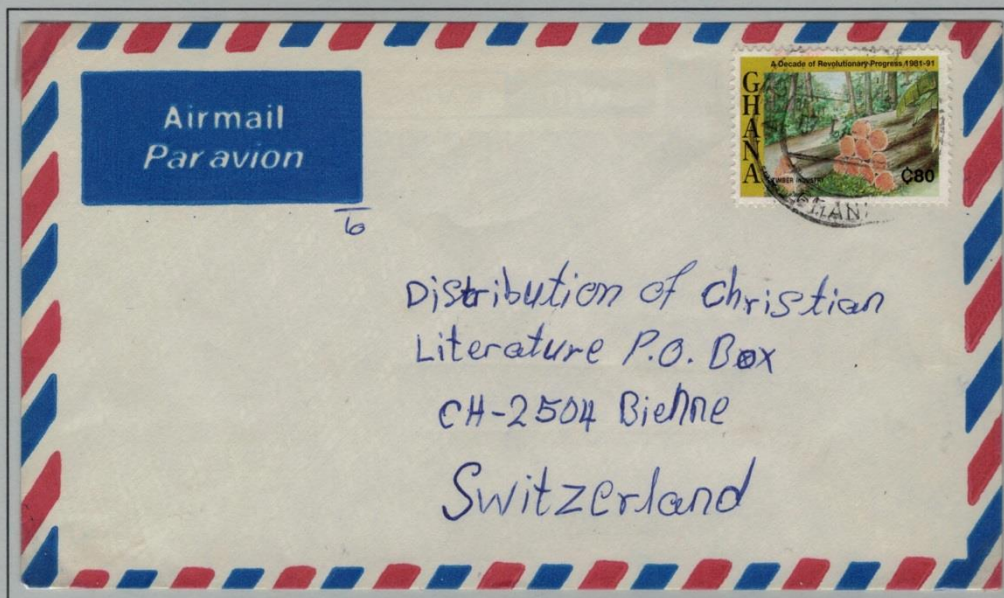 Airmail
Par avion
A Decade of Revolutionary Progress 1981-91
GHANA
TIMBER INDUSTRY
C80
6
Distribution of Christian
Literature P.O. Box
CH-2504 Biehne
Switzerland